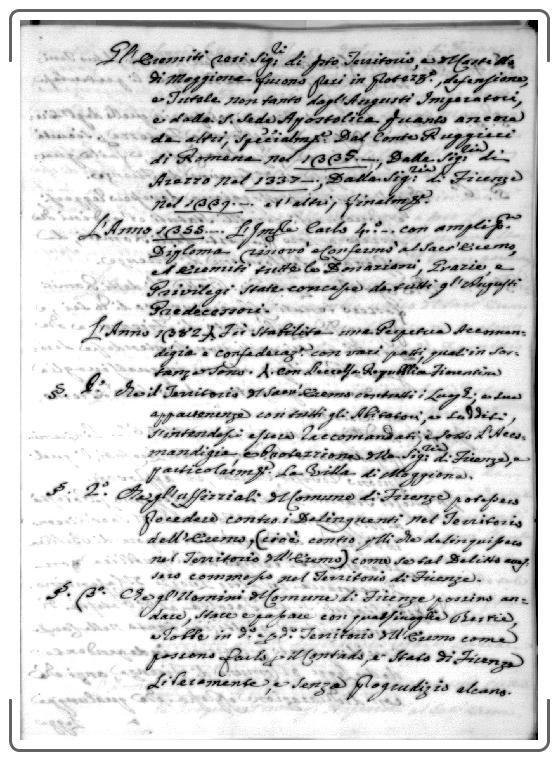 Gl'Eremiti così Sig.ri di d.to Territorio, e Monte Uo
di Moggiona furono presi in protezz.e, defensione,
e Tutela non tanto dagl'Augusti Imperatori,
e dalla S. Sede Apostolica quanto ancora
da altri, specialm.te Dal Conte Ruggieri
di Romena nel 1335..., Dalla Sig.ria di
Arezzo nel 1337..., Dalla Sig.ria di Firenze
nel 1339... et altri, finalm.te
L'Anno 1355... L'Imp.re Carlo 4.o .. con amplis.mo
Diploma rinovò e confermò al Sacr'Eremo,
et Eremiti tutte le Donazioni, Grazie, e
Privilegi state concesse da tutti gl'Augusti
Predecessori.
L'Anno 1382 Fù stabilita una Perpetua Accoman-
digia e confederaz.e con vari patti, quali in Sos-
tanza sono. con l'eccelsa Republica Fiorentina
§. P.o Che il Territorio del Sacr'Eremo con tutti i Luoghi, e sue
appartenenze con tutti gli Abitatori, e Sudditi,
s'intendessi essere Raccomandati, e sotto l'Acco-
mandigia e Protezzione della Sig.ria di Firenze, e
particolarm.te La Villa di Moggiona.
§. 2.o Che gl'Uffizziali del Comune di Firenze potessero
procedere contro i Delinquenti nel Territorio
dell'Eremo, (cioè contro q.lli che delinquissero
nel Territorio dell'Eremo) come se tal Delitto aves-
sero commesso nel Territorio di Firenze.
§. 3.o Che gl'Uomini del Comune di Firenze possino an-
dare, stare e passare con qualsivoglia Bestie,
e Robbe in d.o e p. d.o Territorio dell'Eremo come
possono farlo nel Contado, e Stato di Firenze
Liberamente, e senza pregiudizio alcuno.